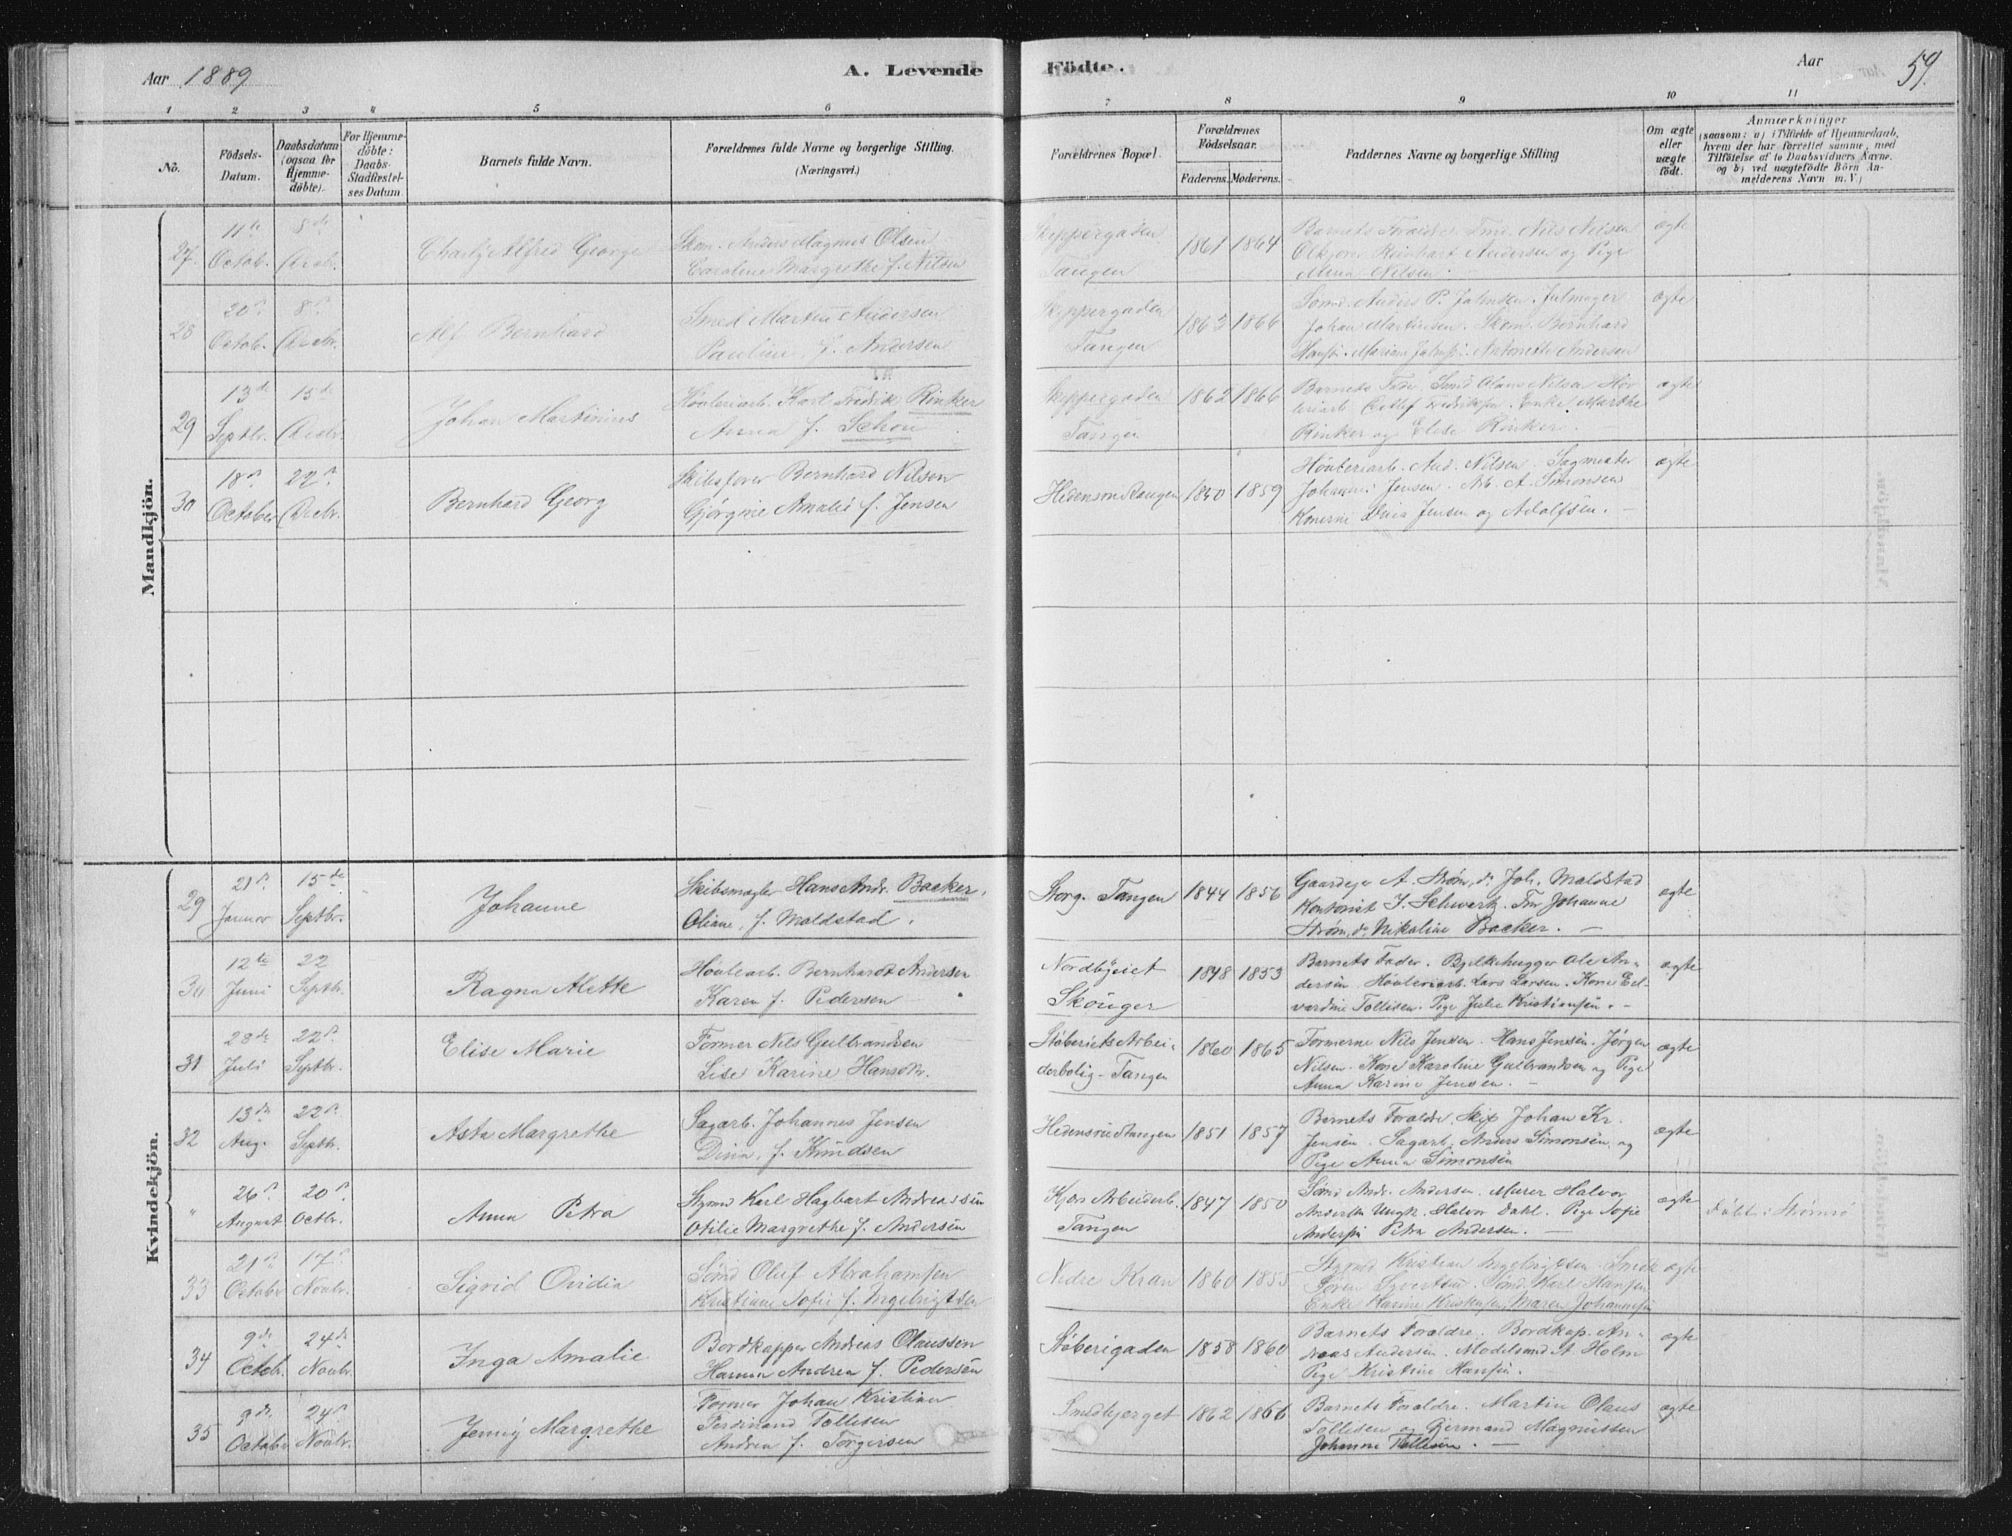 Aar 1889
A. Levende Födte.
Aar
59.
1 2 3 4 5 6 7 8 9 10 11
No.
Födsels-
Datum.
Daabsdatum
(ogsaa for
Hjemme-
döbte).
For Hjemme-
döbte:
Daabs-
Stadfæstel-
ses Datum.
Barnets fulde Navn.
Forældrenes fulde Navne og borgerlige Stilling.
(Næringsvei.)
Forældrenes Bopæl.
Forældrenes
Födselsaar.
Faderens.
Moderens.
Faddernes Navne og borgerlige Stilling
Om ægte
eller
uægte
födt.
Anmærkninger
(saasom: a) i Tilfælde af Hjemmedaab,
hvem der har forrettet samme, med
Tilföielse af to Daabsvidners Navne,
og b) ved uægtefödte Börn An-
melderens Navn m. V.)
Mandkjön.
27
11te
Octob.
8de
Decbr.
Charly Alfred George
Skom. Anders Magnus Olsen
Caroline Margrethe f. Nilsen
Skippergaden
Tangen
1861 1864
Barnets Forældre Smd. Nils Nilsen
Reinhart Andersen og Pige
Nilsen.
ægte
28
20de
Octob.
8de
Decbr.
Alf Bernhard
Smed Martin Andersen
Pauline f. Andersen
Skippergaden
Tangen
1863 1866
Sømd. Anders P. Johnsen. Julmager
Johan Martinsen. Skom. Bernhard
Antonette Andersen
ægte
29
13de
Septbr.
15de
Decbr.
Johan Martinius
Høvleriarb. Karl Fredrik Rinker
Anna f. Schou
Skippergaden
Tangen
1862 1866
Barnets Fader, Smd Olaus Nilsen Høv
leriarb. Detlef Fredriksen. Enke Marthe
Rinker og Elise Rinker.
ægte
30
18de
October
22de
Decbr.
Bernhard Georg
Skibsfører Bernhard Nilsen
Gjørgine Amalie f. Jensen
Hedensrudtangen
1850 1859
Høvleriarb. And. Nilsen. Sagmester
Johannes Jensen. Arb. A. Simonsen
Konerne Dina Jensen og Adolfsen. —
ægte
Kvindekjön.
29
21de
Januar
15de
Septbr.
Johanne
Skibsmægler Hans Andr. Backer,
Oliane, f. Moldstad.
Storg. Tangen
1844 1856
Gaardeier A. Strøm, do Joh. Moldstad
Kontorist J. Schwartz. Fru Johanne
Strøm, do Nikoline Backer. —
ægte
30
12te
Juni
22
Septbr.
Ragna Alette
Høvlearb. Bernhardt Andersen
Karen f. Pedersen
Nordbyeiet
Skouger
1848 1853
Barnets Fader. Bjelkehugger Ole An-
dersen. Høvleriarb. Lars Larsen. Kone Ed-
vardine Tollisen. Pige Julie Kristiansen. —
ægte
31
28de
Juli
22de
Septbr.
Elise Marie
Former Nils Gulbrandsen
Lise Karine Hansdtr.
Støberiets Arbei-
derbolig - Tangen
1860 1865
Formerne Nils Jensen. Hans Jensen. Jørgen
Nilsen. Kone Karoline Gulbrandsen og Pige
Anna Karine Jensen. —
ægte
32
13de
Aug.
22de
Septbr.
Asta Margrethe
Sagarb. Johannes Jensen
Dina, f. Knudsen
Hedensrudtangen
1851 1857
Barnets Forældre, Skip Johan Kr.
Jensen. Sagarb. Anders Simonsen, og
Pige Anna Simonsen
ægte
"
26de
August
20de
Octbr.
Anna Petra
Styrmd Karl Hagbart Andreassen
Otilie Margrethe f. Andersen
Kjøs Arbeiderb.
Tangen
1847 1850
Sømd Andr. Andersen. Murer Halvor
Andersen Ungk. Halvor Dahl. Pige Sofie
Andersen Petra Andersen. —
ægte
Døbt i Strømsø
33
21de
October
17de
Novbr.
Sigrid Ovidia
Sømd Oluf Abrahamsen
Kristiane Sofie f. Ingebrigtsen
Nedre Kran
1860 1855
Styrmd Kristian Ingebrigtsen. Smed
Søren Syvertsen. Sømd. Karl Hansen
Enke Karine Kristensen, Maren Johannesen
ægte
34
9de
Octob.
24de
Novbr.
Inga Amalie
Bordkapper Andreas Olaussen
Hanna Andrea f. Pedersen
Støberigaden
1858 1860
Barnets Forældre. Bordkap. An-
dreas Andersen. Modelsned. A. Holm
Pige Kristine Hansen.
ægte
35
9de
October
24de
Novbr.
Jenny Margrethe
Former Johan Kristian
Ferdinand Tollisen
Andrea f. Torgersen
Smedbjerget
1862 1866
Barnets Forældre. Martin Olaus
Tollisen og Gjermand Magnussen
Johanne Tollisen. —
ægte